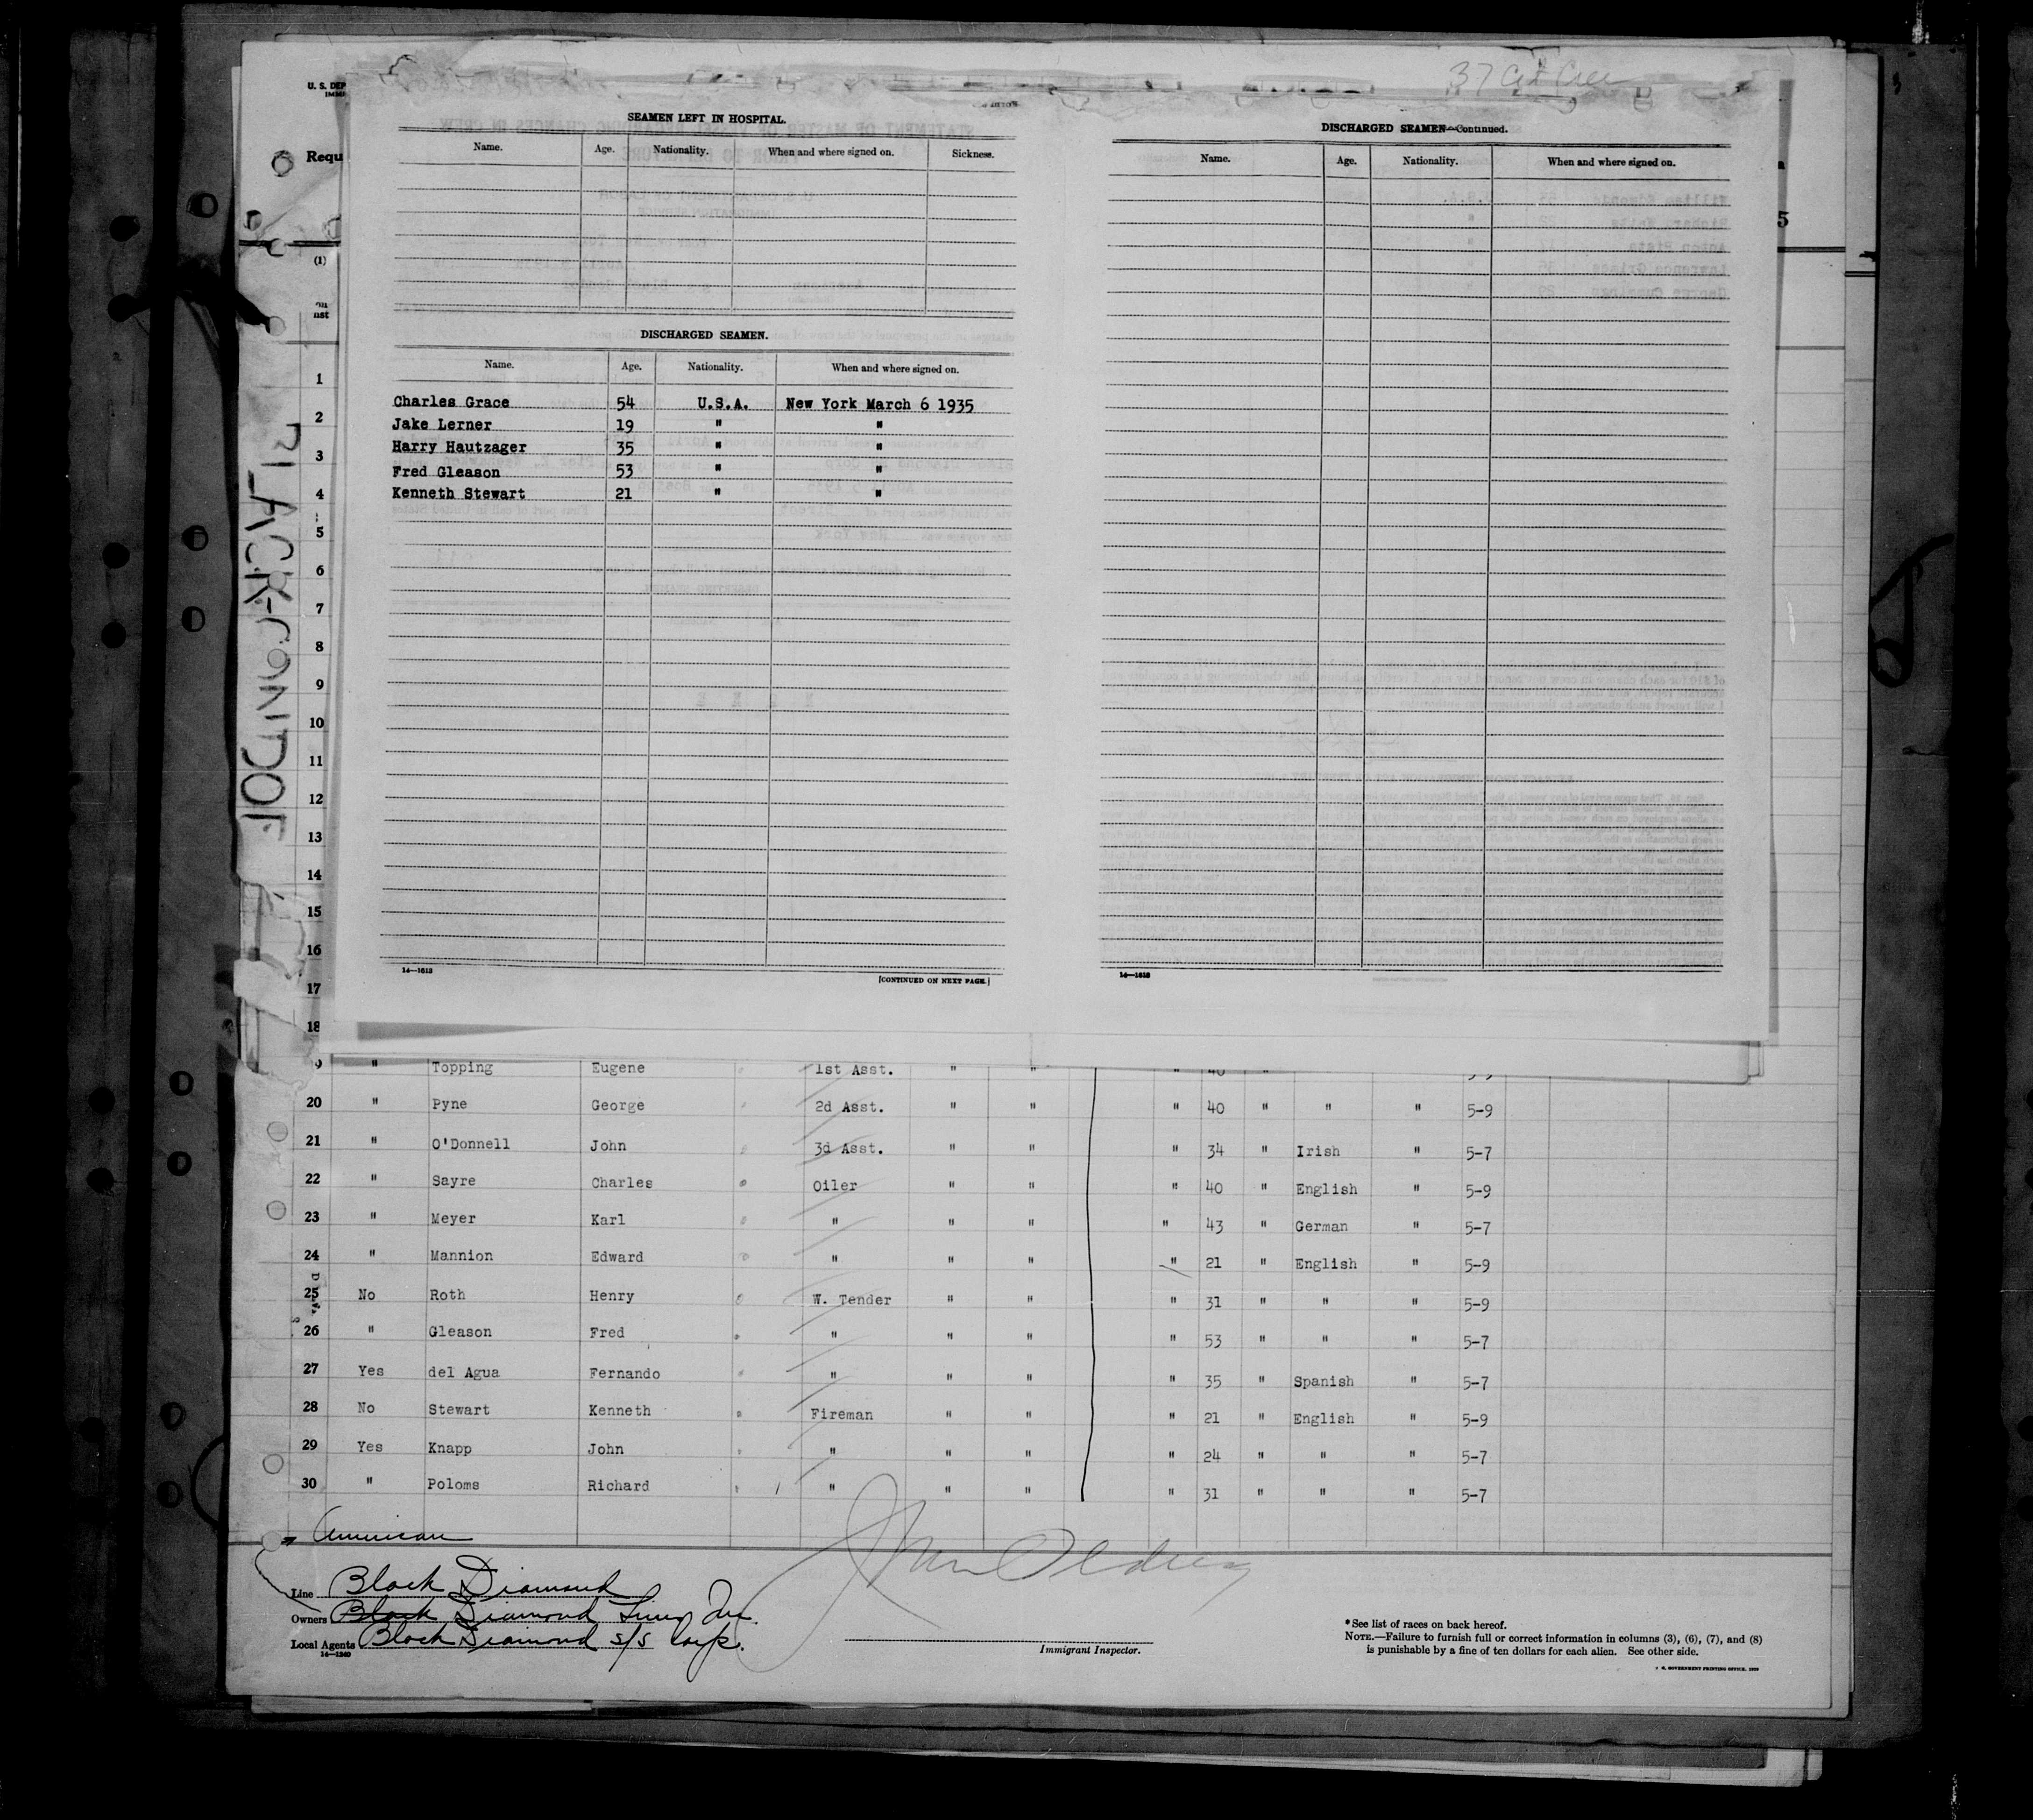 37
U. S. DEP
IMMI
Requ
5
(1)
SEAMEN LEFT IN HOSPITAL.
Name. Age. Nationality. When and where signed on. Sickness.
DISCHARGED SEAMEN.
Name. Age. Nationality. When and where signed on.
Charles Grace 54 U.S.A. New York March 6 1935
Jake Lerner 19 " "
Harry Hautzager 35 " "
Fred Gleason 53 " "
Kenneth Stewart 21 " "
14—1613
[CONTINUED ON NEXT PAGE.]
DISCHARGED SEAMEN—Continued.
Name. Age. Nationality. When and where signed on.
14—1613
BLACK CONDOR
1
2
3
4
5
6
7
8
9
10
11
12
13
14
15
16
17
18
9 " Topping Eugene 1st Asst. " " " 40 "
20 " Pyne George 2d Asst. " " " 40 " " " 5-9
21 " O'Donnell John 3d Asst. " " " 34 " Irish " 5-7
22 " Sayre Charles Oiler " " " 40 " English " 5-9
23 " Meyer Karl " " " " 43 " German " 5-7
24 " Mannion Edward " " " " 21 " English " 5-9
25 No Roth Henry W. Tender " " " 31 " " " 5-9
26 " Gleason Fred " " " " 53 " " " 5-7
27 Yes del Agua Fernando " " " " 35 " Spanish " 5-7
28 No Stewart Kenneth Fireman " " " 21 " English " 5-9
29 Yes Knapp John " " " " 24 " " " 5-7
30 " Poloms Richard " " " " 31 " " " 5-7
American
Line Black Diamond
Owners Black Diamond Lines Inc.
Local Agents Black Diamond S/S Corp.
14—1240
Immigrant Inspector.
* See list of races on back hereof.
NOTE.—Failure to furnish full or correct information in columns (3), (6), (7), and (8)
is punishable by a fine of ten dollars for each alien. See other side.
GOVERNMENT PRINTING OFFICE